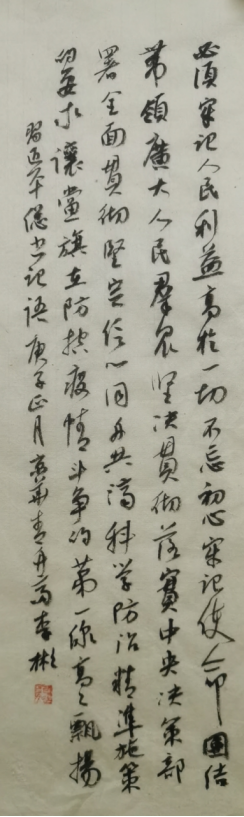 必须牢记人民利益高於一切不忘初心牢记使命團结
带领廣大人民群众坚决贯彻落實中央决策部
署全面贯彻坚定信心同舟共濟科学防治精準施策
的要求讓黨旗在防控疫情斗争的第一線高高飘揚
習近平總书记语庚子正月 青丹 李彬